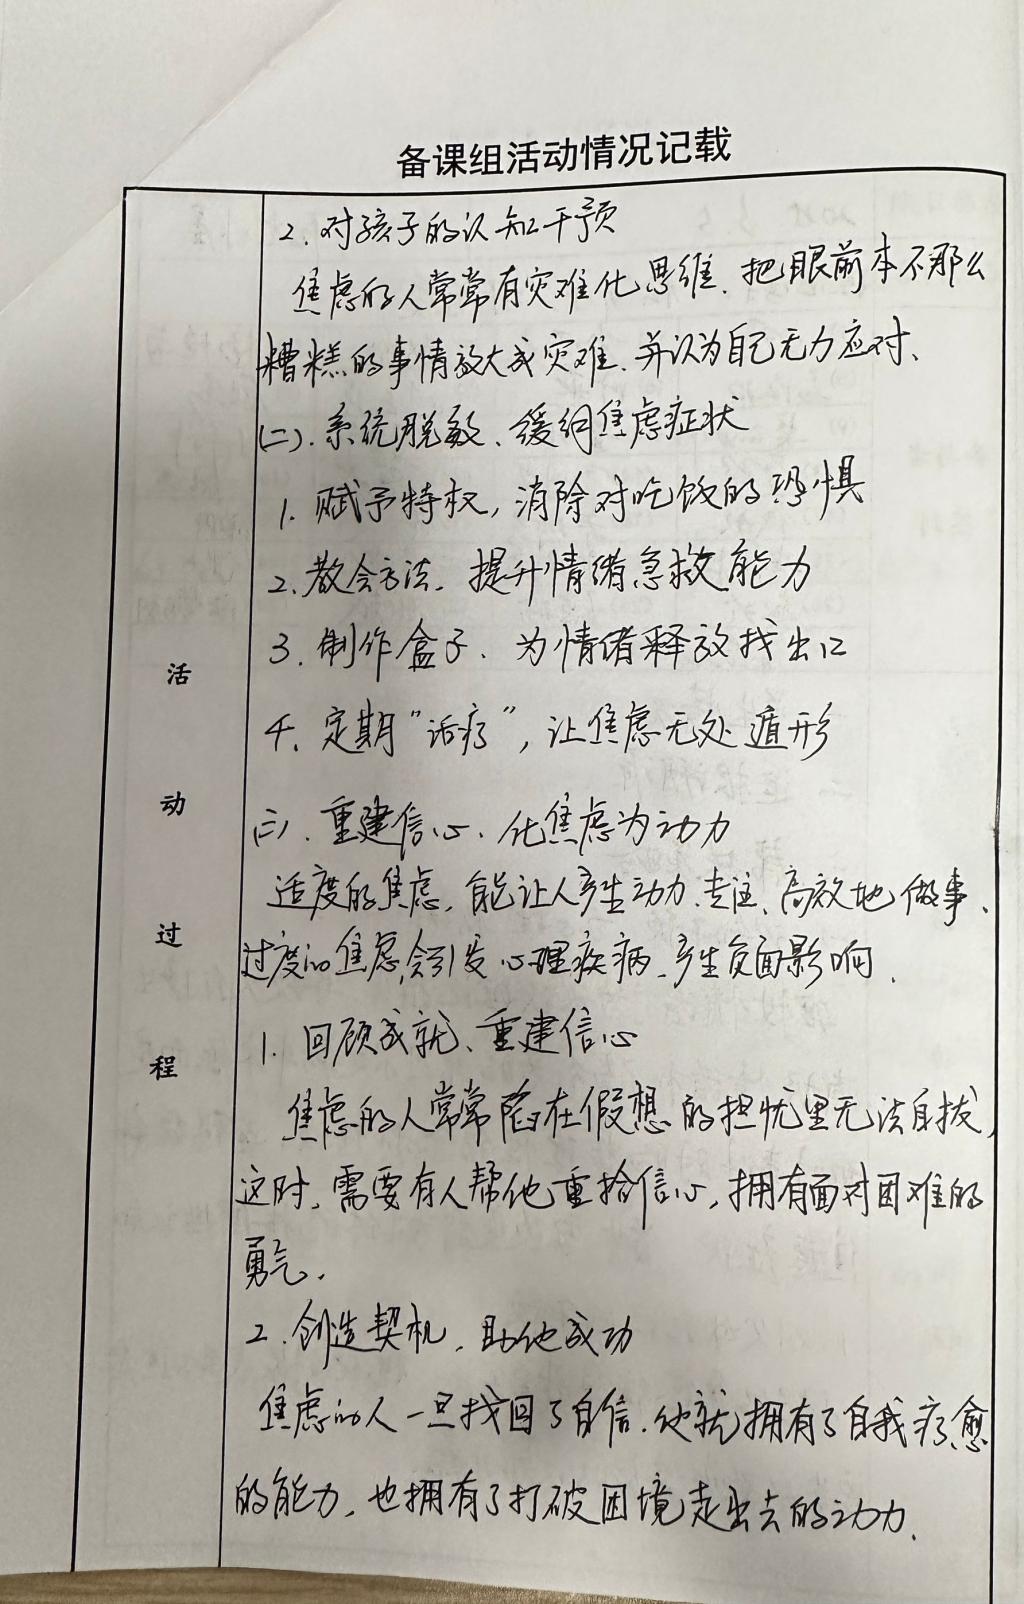 备课组活动情况记载
2. 对孩子的认知干预
焦虑的人常常有灾难化思维、把眼前本不那么
糟糕的事情放大成灾难、并认为自己无力应对、
(二). 系统脱敏、缓解焦虑症状
1. 赋予特权, 消除对吃饭的恐惧
2. 教会方法、提升情绪急救能力
3. 制作盒子、为情绪释放找出口
4. 定期“话疗”, 让焦虑无处遁形
(三). 重建信心、化焦虑为动力
适度的焦虑, 能让人产生动力、专注、高效地做事、
过度的焦虑, 会引发心理疾病、产生负面影响.
1. 回顾成就、重建信心
焦虑的人常常陷在假想的担忧里无法自拔,
这时, 需要有人帮他重拾信心, 拥有面对困难的
勇气.
2. 创造契机, 助他成功
焦虑的人一旦找回了自信. 他就拥有了自我疗愈
的能力, 也拥有了打破困境走出去的动力.
活
动
过
程